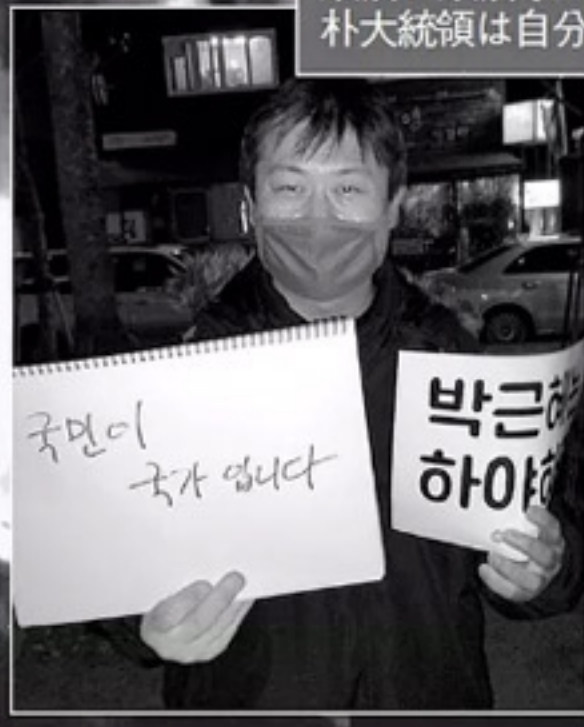 朴大統領は自分
국민이
국가 입니다
박근혜
하야